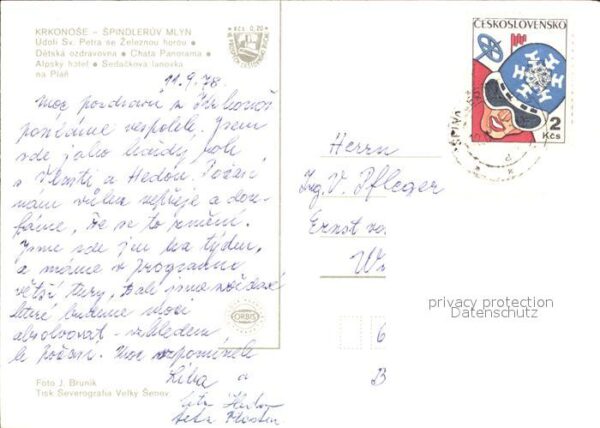 KRKONOŠE – ŠPINDLERŮV MLÝN
Údolí Sv. Petra se Železnou horou •
Dětská ozdravovna • Chata Panorama •
Alpský hotel • Sedačková lanovka
na Pláň
Kčs 0,70
11.9.78.
Moc pozdravů z Krkonoš
posíláme vespolek. Jsem
zde jako každý rok
s Vlastí a Hedou. Počasí
nám vůbec nepřeje a dou-
fáme, že se to změní.
Jsme zde jen na týden,
a máme v programu
větší túry,
které budeme moci
absolvovat – vzhledem
k počasí. Moc vzpomínáte
Liba a
Heda
ORBIS
Foto J. Bruník
Tisk Severografia Velký Šenov
ČESKOSLOVENSKO
2
Kčs
Herrn
Ing. V. Pfleger
Ernst
W
6
B
privacy protection
Datenschutz